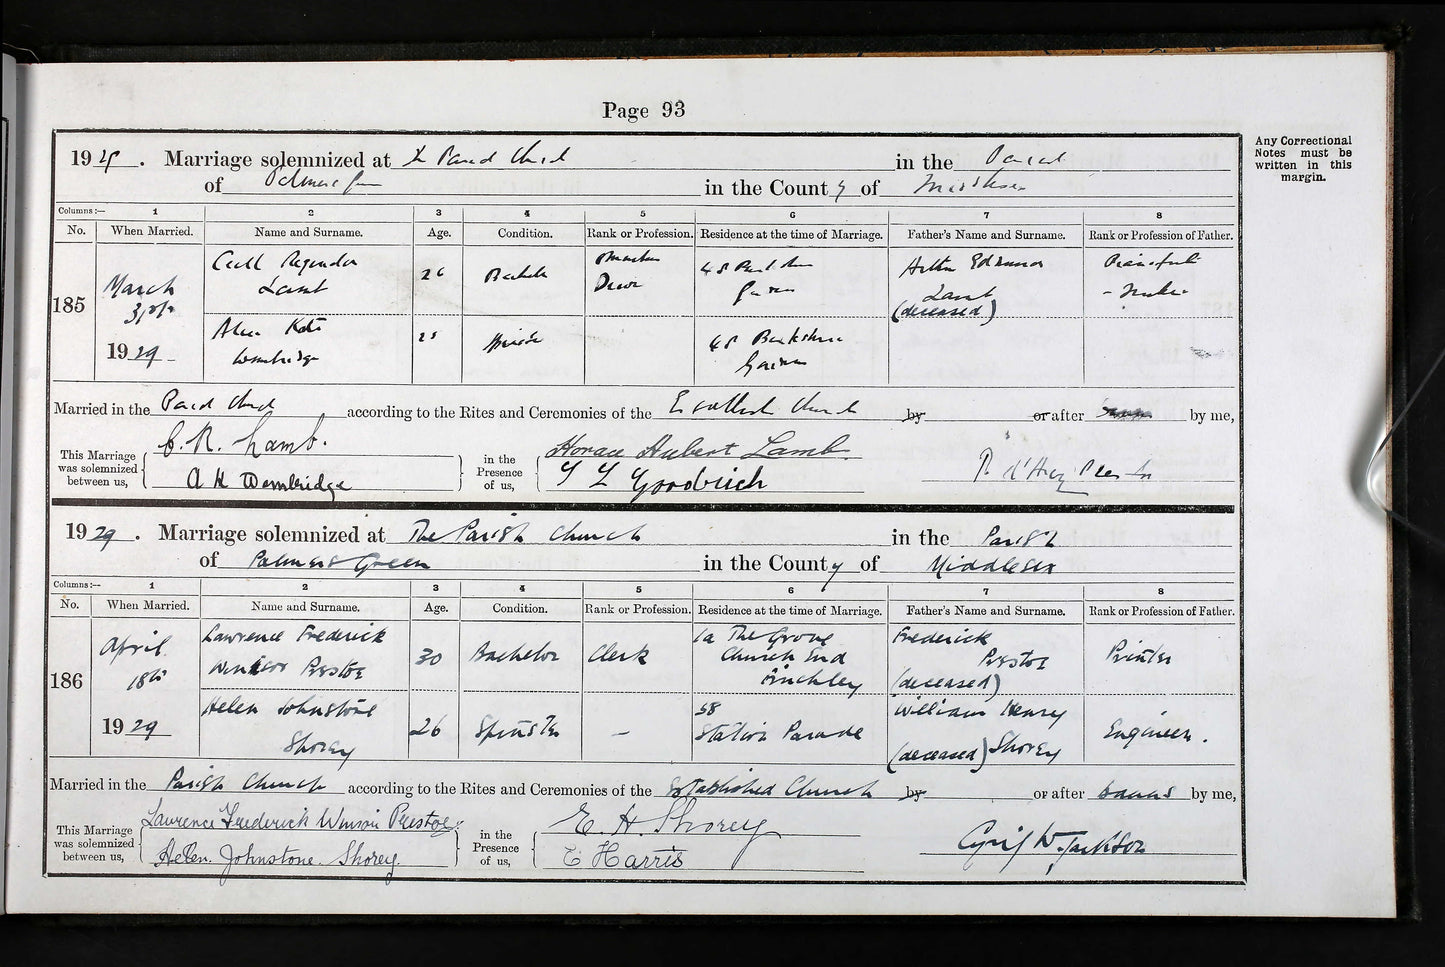 Page 93
Any Correctional
Notes must be
written in this
margin.
1929. Marriage solemnized at The Parish Church in the Parish
of Palmers Green in the County of Middlesex
Columns:— 1 2 3 4 5 6 7 8
No. When Married. Name and Surname. Age. Condition. Rank or Profession. Residence at the time of Marriage. Father's Name and Surname. Rank or Profession of Father.
185
March
31st
1929
Cecil Reginald
Lamb
26
Bachelor
48 Berkshire
Gardens
Arthur Edmund
Lamb
(deceased)
Pianoforte
- Maker
Alice Kate
Wembridge
25
48 Berkshire
Gardens
Married in the Parish Church according to the Rites and Ceremonies of the Established Church by or after by me,
This Marriage
was solemnized
between us,
C. R. Lamb.
A K Wembridge
in the
Presence
of us,
Horace Hubert Lamb.
Y L Goodrich
1929. Marriage solemnized at The Parish Church in the Parish
of Palmers Green in the County of Middlesex
Columns:— 1 2 3 4 5 6 7 8
No. When Married. Name and Surname. Age. Condition. Rank or Profession. Residence at the time of Marriage. Father's Name and Surname. Rank or Profession of Father.
186
April
18th
1929
Lawrence Frederick
Winsor Prestoe
30
Bachelor
Clerk
1a The Grove
Church End
Finchley
Frederick
Prestoe
(deceased)
Printer
Helen Johnstone
Shorey
26
Spinster
—
58
Station Parade
William Henry
(deceased) Shorey
Engineer.
Married in the Parish Church according to the Rites and Ceremonies of the Established Church by or after banns by me,
This Marriage
was solemnized
between us,
Lawrence Frederick Winsor Prestoe.
Helen. Johnstone. Shorey.
in the
Presence
of us,
E. H. Shorey
E Harris
Cyril W. Jackson